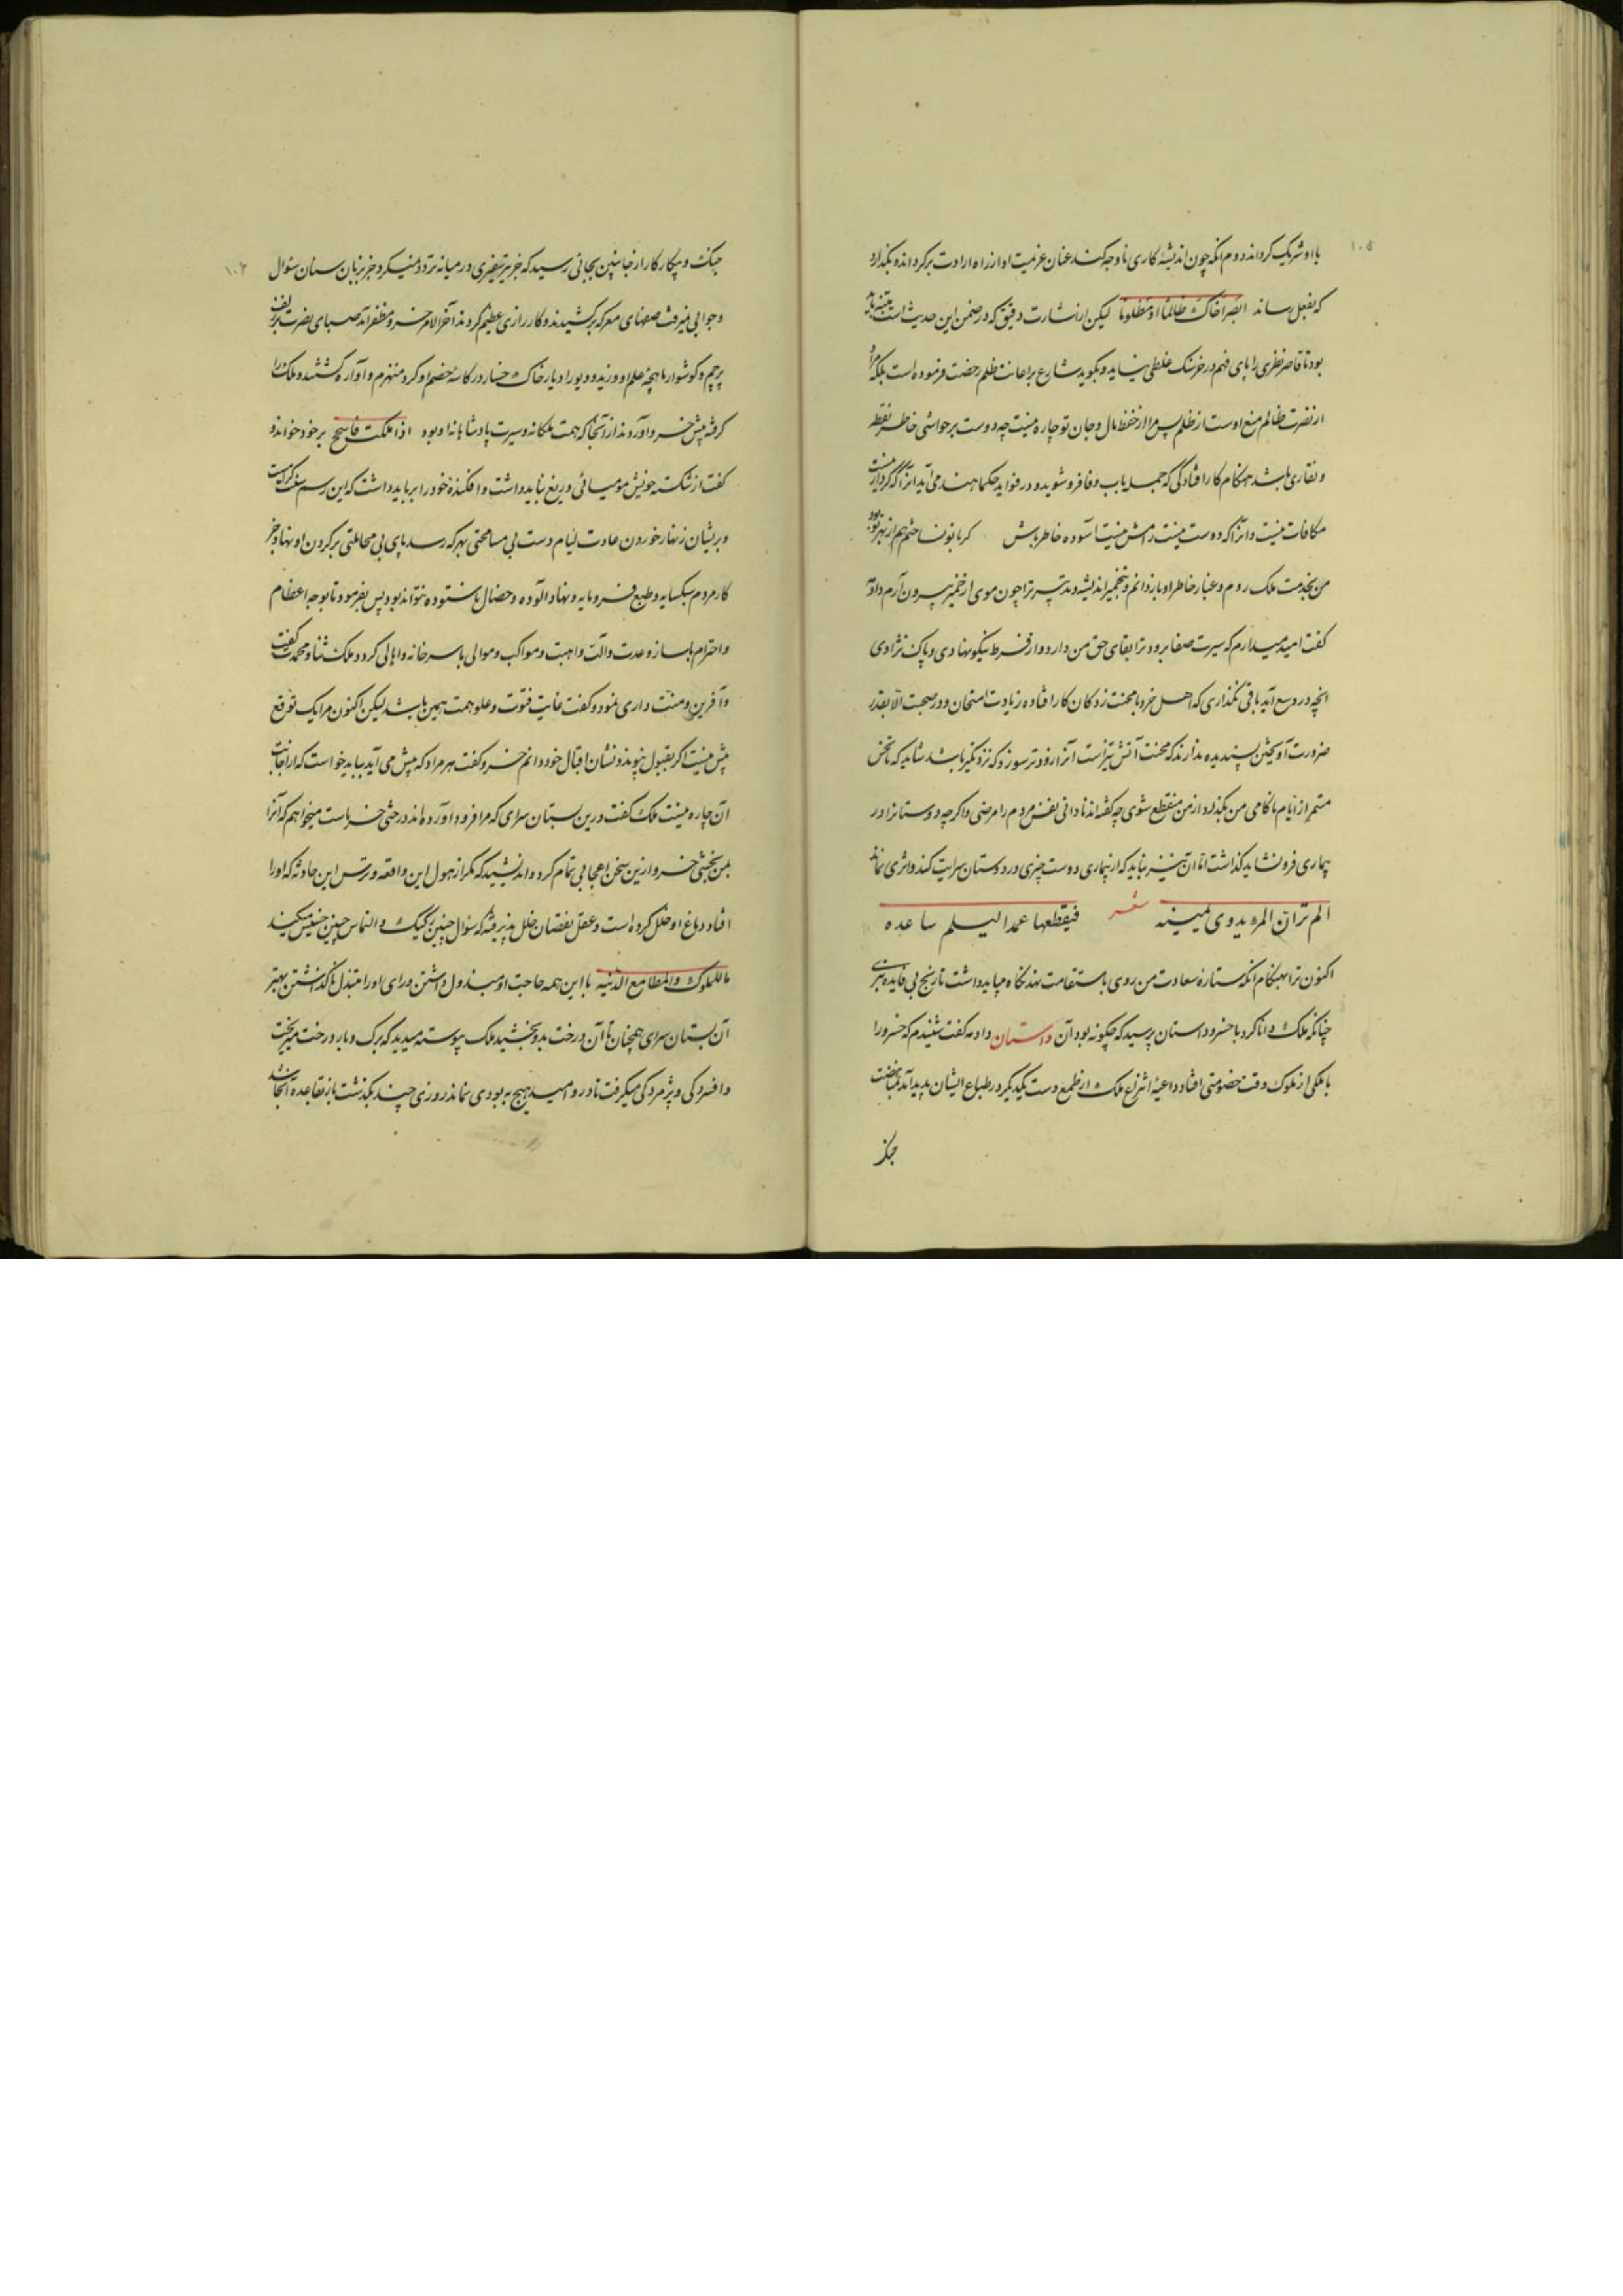 ۱۰۵
با او شریک گرداند دوم آنکه چون اندیشهٔ کاری ناوجه کند عنان عزیمت او از راه ارادت برگرداند و نگذارد
که بفعل رساند انصر اخاک ظالما او مظلوما لیکن از اشارت دقیق که در ضمن این حدیث است متنبه باید
بود تا قاصر نظری را پای فهم در خرسنگ غلطی نیاید و نگوید شارع بر اعانت ظلم رخصت فرموده است بلکه مراد
از نصرت ظالم منع اوست از ظلم پس مرا از حفظ مال و جان تو چاره نیست چه دوست بر حواشی خاطر نقطه
و نقاری باشد هنگام کار افتادگی که جمله باب وفا فرو شوید و در فواید حکما هند می آید آنرا که کردار نیست
مکافات نیست و آنرا که دوست نیست رامش نیست آسوده خاطر باش کر با تو نساختم هم از بهر تو بود
من بخدمت ملک روم و غبار خاطر او باز دانم و بخمیر اندیشه و تدبیر ترا چون موی از خمیر بیرون آرم دادمه
گفت امید میدارم که سیرت صفا پرورد ترا بقای حق من دارد و از فرط نیکو نهادی و پاک نژادی
آنچه در وسع آید باقی نگذاری که اهل خرد با محنت زدگان کار افتاده زیادت امتحان و در صحبت الا بقدر
ضرورت آویختن پسندیده ندارند که محنت آتش تیز است آنرا زودتر سوزد که نزدیکتر باشد شاید که تا نحس
مستمر از ایام ناکامی من بگذرد از من منقطع شوی چه گفته اند نادانی نفس مردم را مرضی و اگر چه دوستانرا در
بیماری فرو نشاید گذاشت اما آن نیز نباید که از بیماری دوست چیزی در دوستان سرایت کند و اثری نماید
الم تر ان المرء یدوی یمینه شعر فیقطعها عمدا لیسلم ساعده
اکنون ترا بهنگام آنکه ستارهٔ سعادت من روی باستقامت نهد نگاه میباید داشت تا رنج بی فایده نبری
چنانکه ملک دانا کرد با خسرو داستان پرسید که چگونه بود آن داستان دادمه گفت شنیدم که خسرو را
با ملکی از ملوک وقت خصومتی افتاد و داعیهٔ انتزاع ملک از طمع دست یکدیگر در طباع ایشان پدید آمد بمناهضت
جنک
۱۰۶
جنک و پیکار کار از جانبین بجائی رسید که جز تیر سفیری در میانه تردد نمیکرد و جز بزبان سنان سئوال
و جوابی نمیرفت صفهای معرکه برکشیدند و کارزاری عظیم کردند آخر الامر خسرو مظفر آمد صبای نصرت بر زلف
پرچم و گوشوار ماهچهٔ علم او وزید و دبور ادبار خاک خسار در کاسهٔ خصم او کرد منهزم و آواره گشتند و ملک را
گرفته پیش خسرو آوردند از آنجا که همت ملکانه و سیرت پادشاهانهٔ او بود اذا ملکت فاسجح بر خود خواند و
گفت از شکستهٔ خویش مومیائی دریغ نباید داشت و افکندهٔ خود را بر باید داشت که این رسم سنت کرامست
و بر پیشان زنهار خوردن عادت لئیام دست بی مسامحتی بهر که رسد پای بی مجاملتی بر گردن او نهاد جز
کار مردم سبکسایه و طبع فرومایه و نهاد آلوده و خصال ناستوده نتواند بود پس بفرمود تا بوجه اعظام
و احترام با ساز و عدت و آلت و اهبت و مواکب و موالی با سر خانه و اهالی گردد ملک ثنا و محمدت گفت
و آفرین و منت داری نمود و گفت غایت فتوت و علو همت همین باشد لیکن اکنون مرا یک توقع
پیش نیست اگر بقبول پیوندد نشان اقبال خود دانم خسرو گفت هر مراد که پیش می آید بباید خواست که از اجابت
آن چاره نیست ملک گفت درین بستان سرای که مرا فرود آورده اند درختی خرماست میخواهم که آنرا
بمن بخشی خسرو ازین سخن اعجابی تمام کرد و اندیشید که مگر از هول این واقعه و ترس این حادثه که او را
افتاد دماغ او خلل کرده است و عقل نقصان خلل پذیرفته که سئوال چنین رکیک و التماس چنین خسیس میکند
ما للملوک و المطامع الدنیه با این همه حاجت او مبذول داشتن و رای او را مبتذل نا گذاشتن بهتر
آن بستان سرای همچنان با آن درخت بدو بخشید ملک پیوسته میدید که برگ و بار درخت میریخت
و افسردگی و پژمردگی میگرفت تا درو امید هیچ به بودی نماند روزی چند بگذشت باز بقاعده آنجا شد